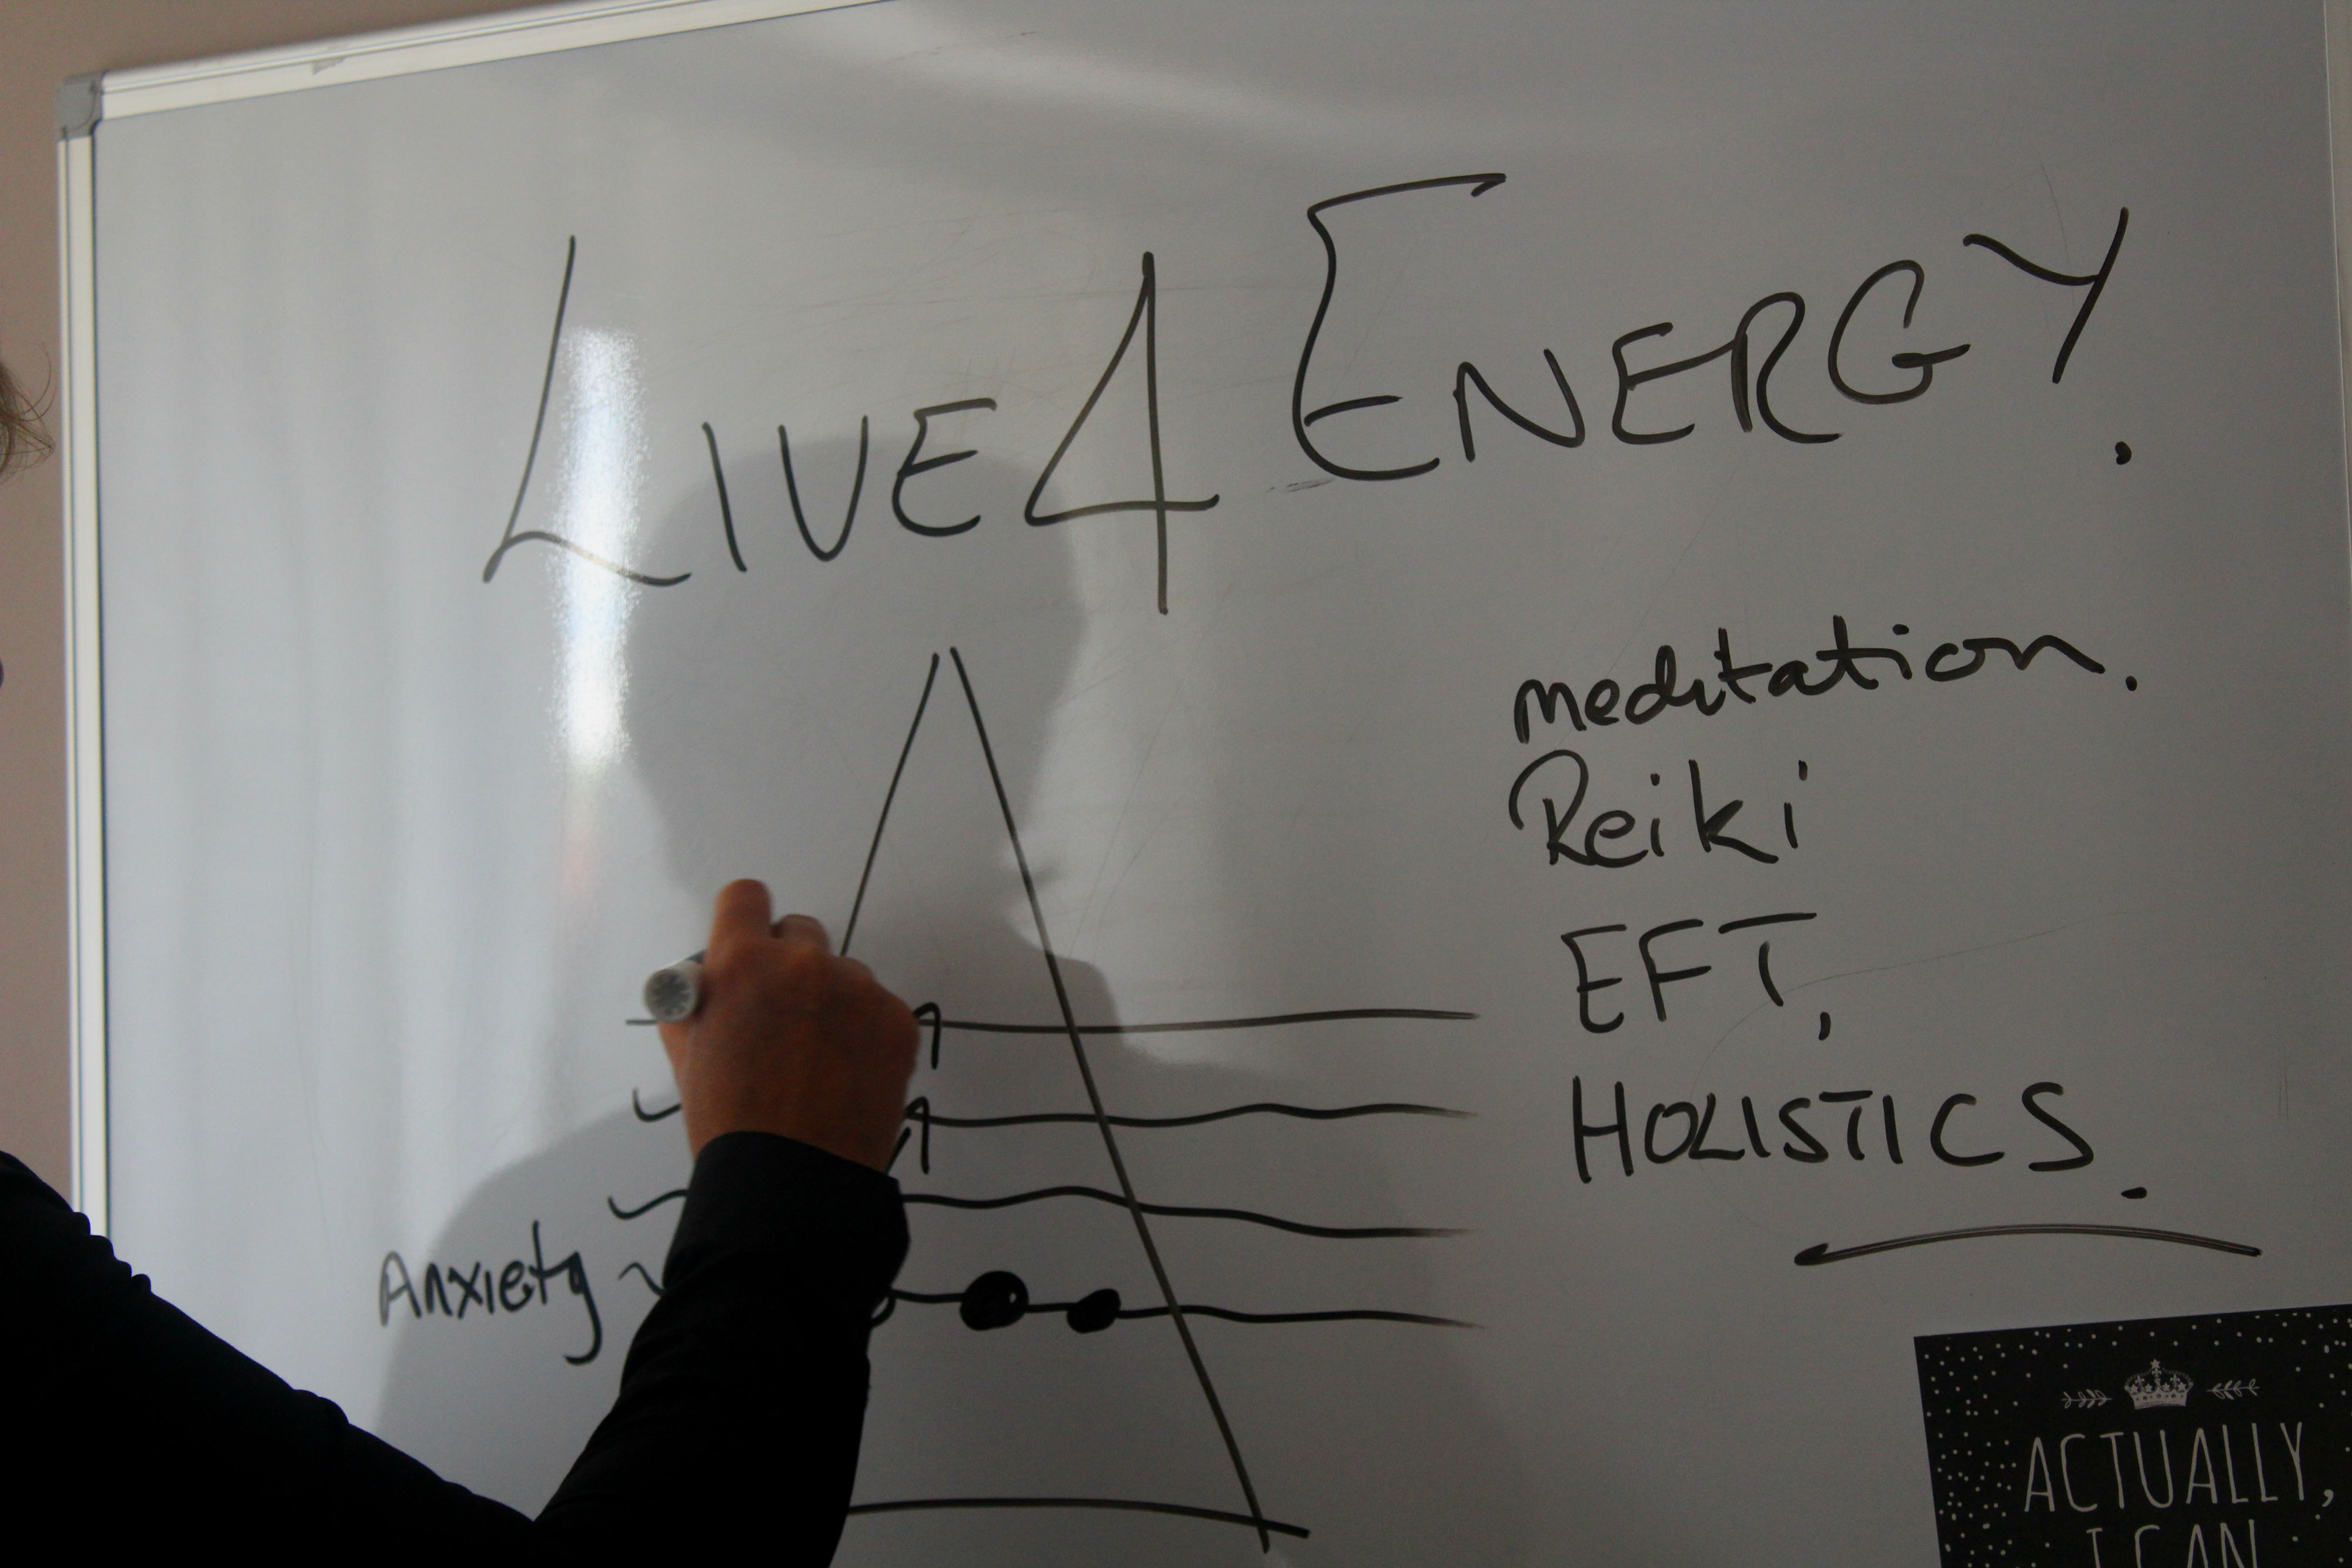 LIVE 4 ENERGY.
meditation.
Reiki
EFT,
HOLISTICS.
Anxiety
ACTUALLY,
I CAN